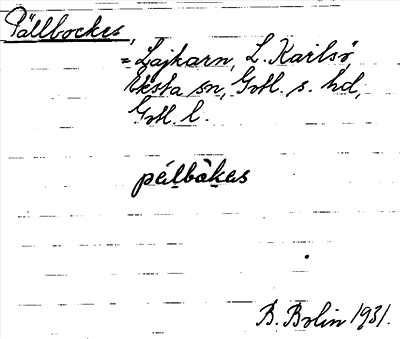 Pällbockes,
= Lajkarn, L. Karlsö,
Eksta sn, Gotl. s. hd,
Gotl. l.
pälbåkas
B. Bolin 1931.